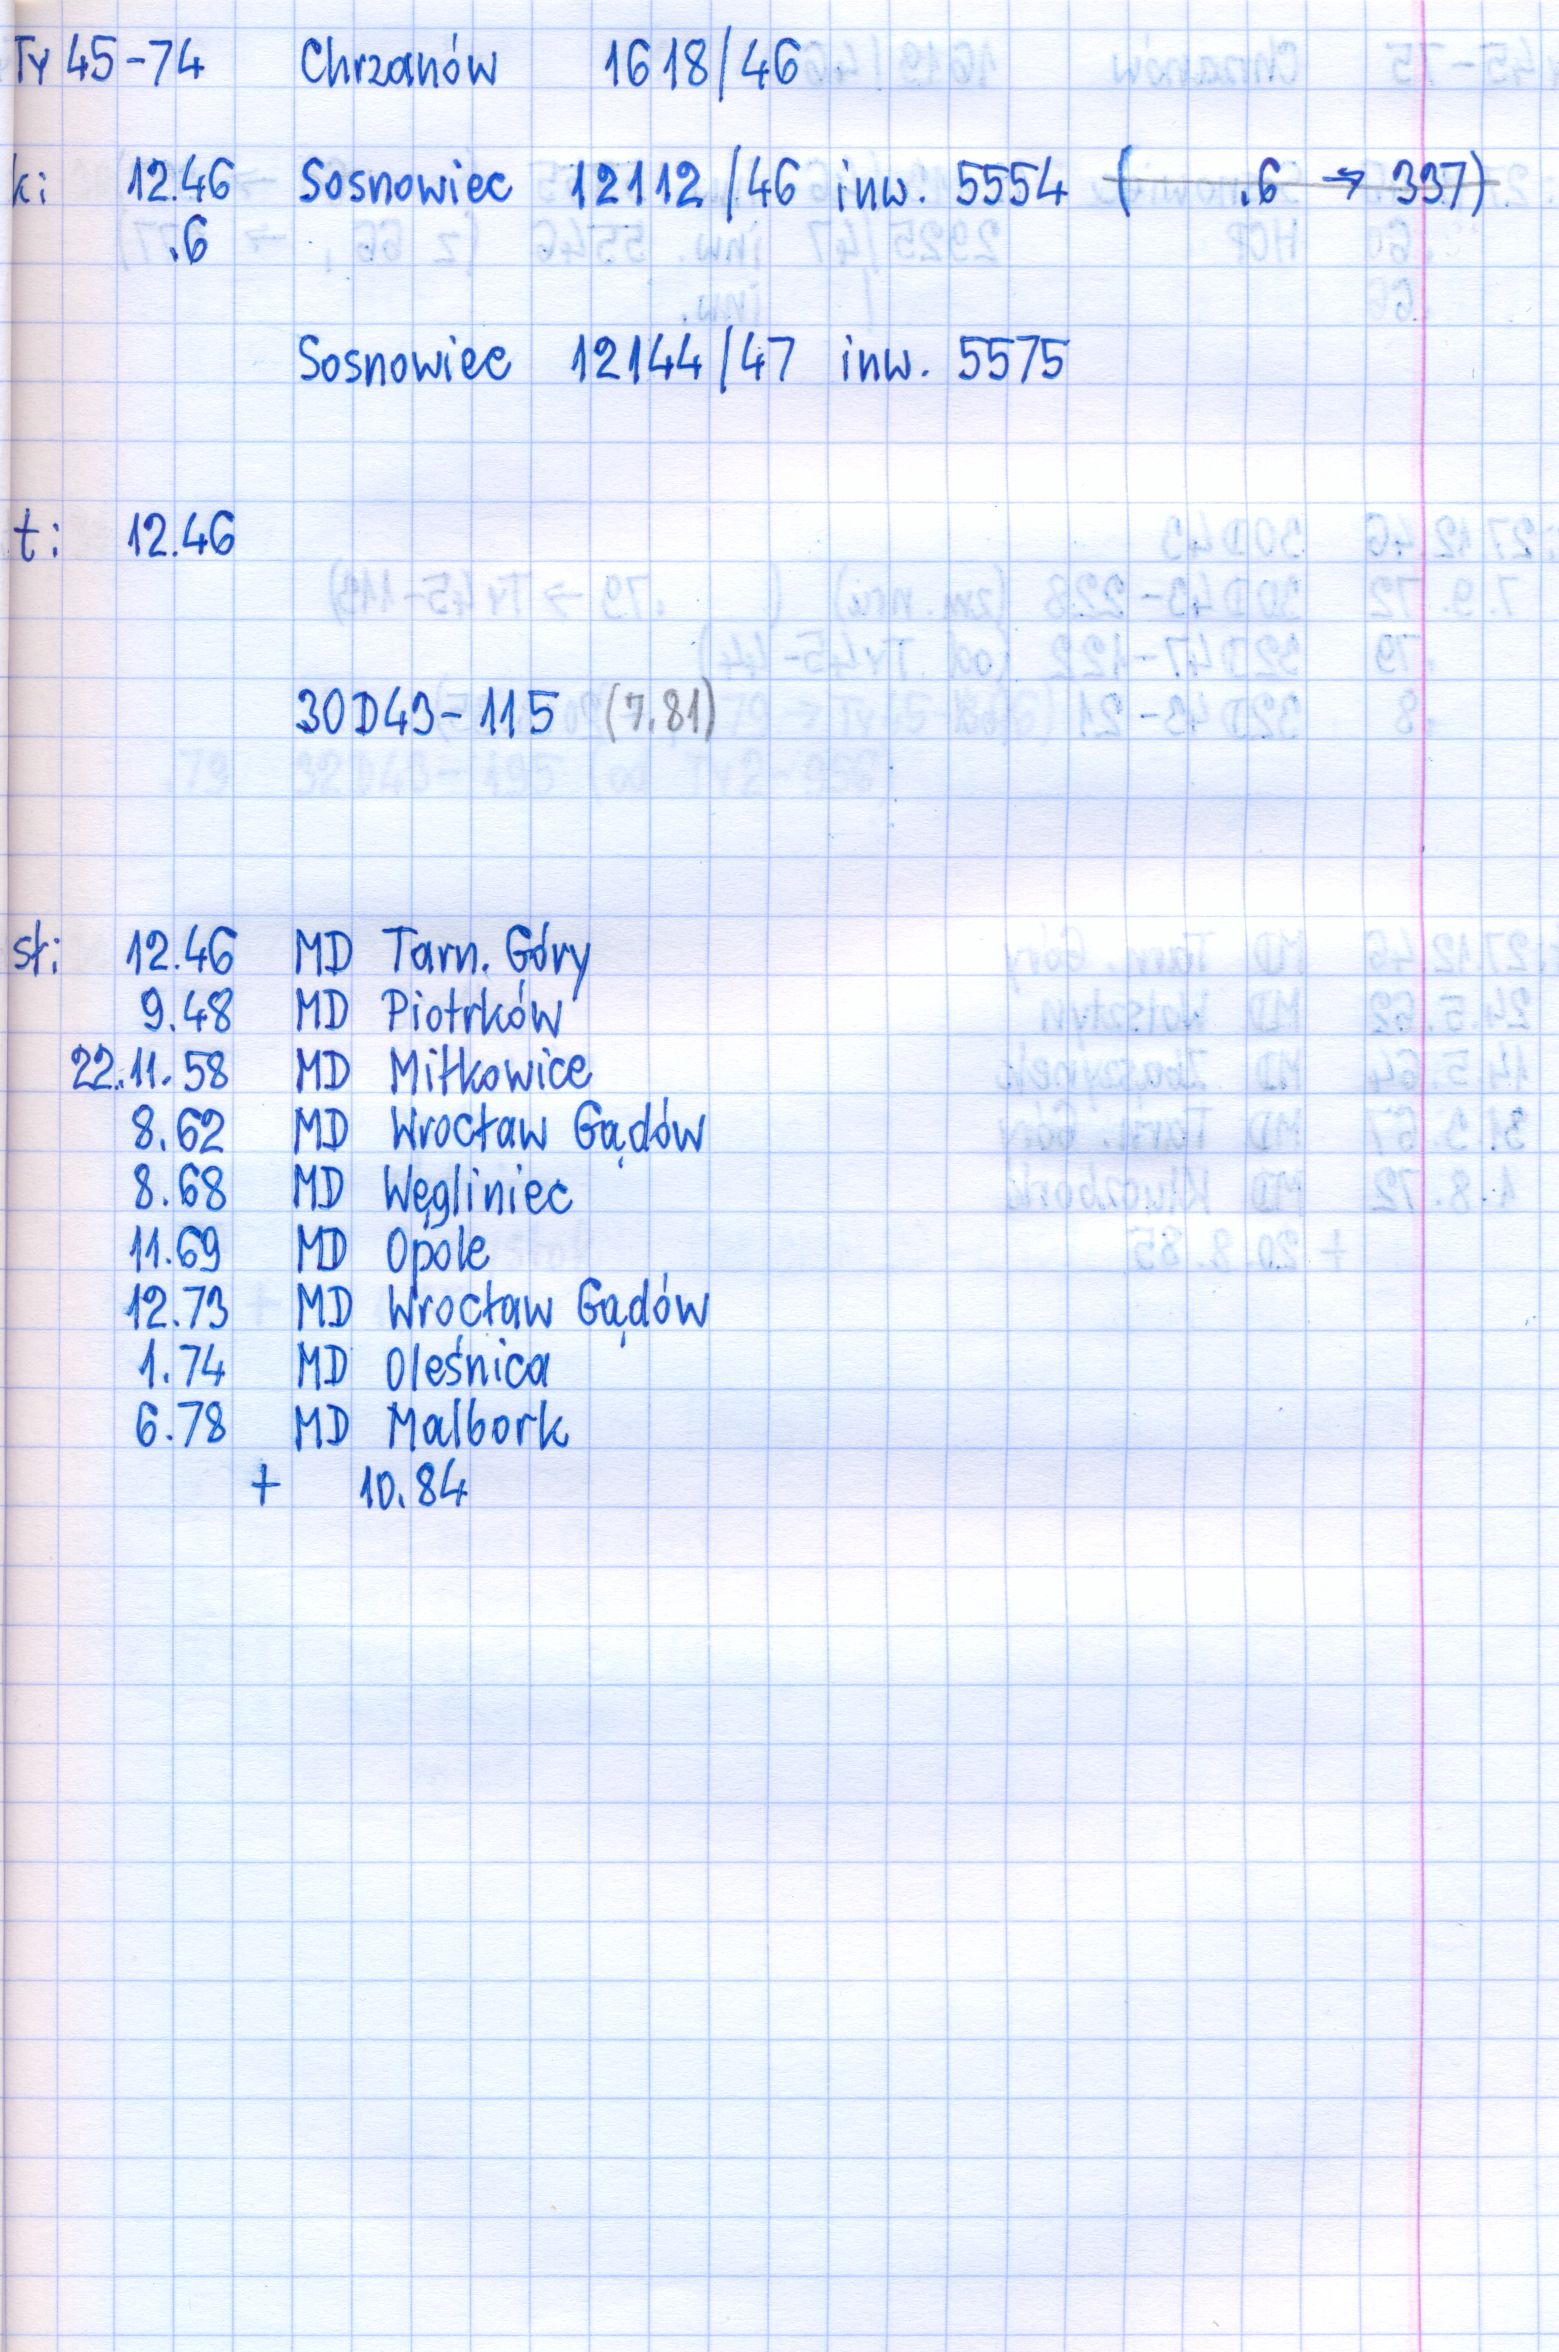 Ty 45-74 Chrzanów 1618/46
k: 12.46 Sosnowiec 12112/46 inw. 5554 ( .6 → 337)
.6
Sosnowiec 12144/47 inw. 5575
t: 12.46
30D43-115 (7.81)
sł: 12.46 MD Tarn. Góry
9.48 MD Piotrków
22.11.58 MD Miłkowice
8.62 MD Wrocław Gądów
8.68 MD Węgliniec
11.69 MD Opole
12.73 MD Wrocław Gądów
1.74 MD Oleśnica
6.78 MD Malbork
+ 10.84